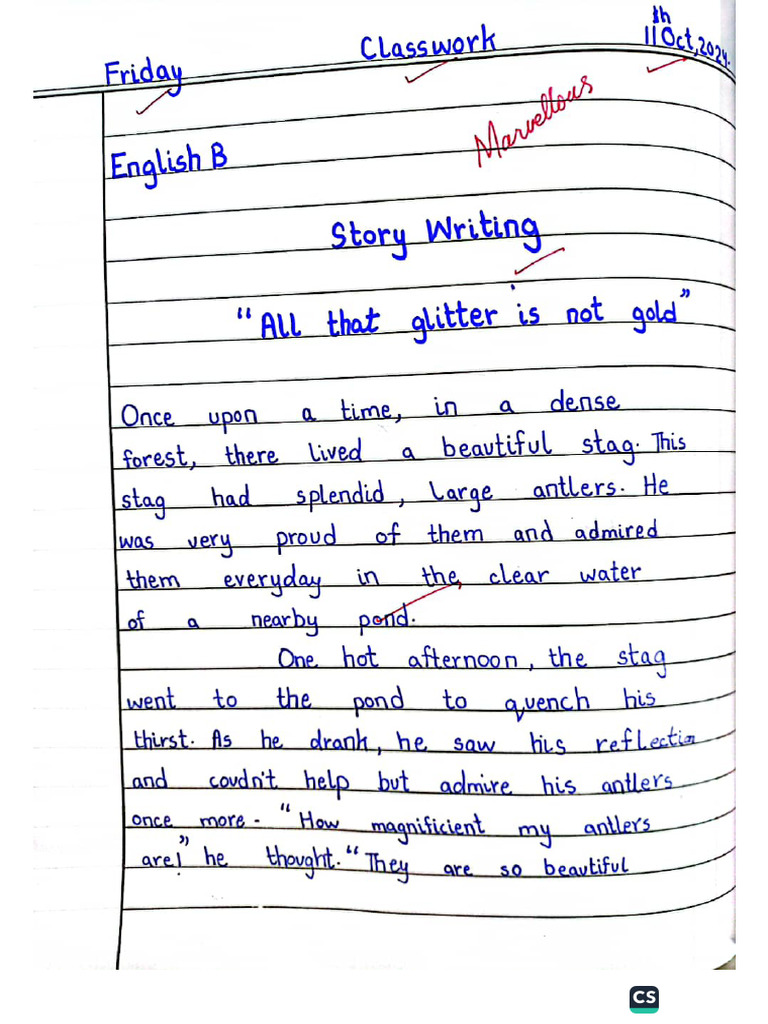 Friday Classwork 11th Oct, 2024.
Marvellous
English B
Story Writing
"All that glitter is not gold"
Once upon a time, in a dense
forest, there lived a beautiful stag. This
stag had splendid, large antlers. He
was very proud of them and admired
them everyday in the clear water
of a nearby pond.
One hot afternoon, the stag
went to the pond to quench his
thirst. As he drank, he saw his reflection
and coudn't help but admire his antlers
once more. "How magnificient my antlers
are!" he thought. "They are so beautiful
CS